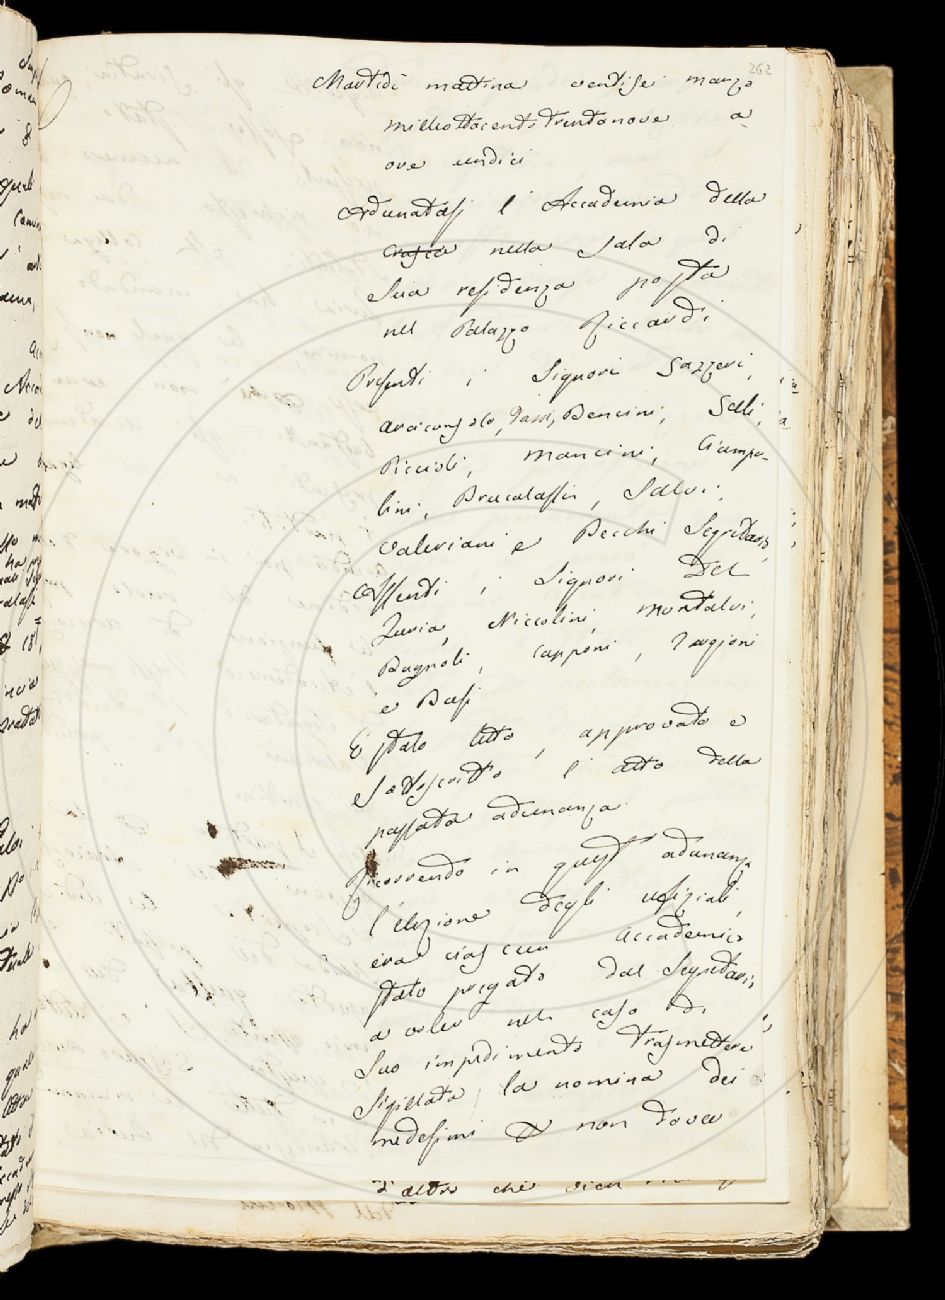 262
Martidì mattina ventisei marzo
milleottocento trentanove a
ore undici
Adunatasi l'Accademia della
Crusca nella Sala di
Sua residenza posta
nel Palazzo Riccardi
Presenti i Signori Gazzeri,
Arciconsolo, Bencini, Selli,
Piccioli, Mancini, Ciampo-
lini, Brucalassi, Salvi,
Valeriani e Becchi Segretario,
Assenti i Signori Del
Furia, Niccolini, Montalvi,
Bagnoli, Capponi, Targioni
e Basi
È stato letto, approvato e
sottoscritto l'atto della
passata adunanza
Ricorrendo in quest'adunanza
l'elezione degli ufiziali,
era ciascun Accademico
stato pregato dal Segretario
a voler nel caso di
Suo impedimento trasmettere
Sigillata la nomina dei
medesimi e non dover
d'altro che